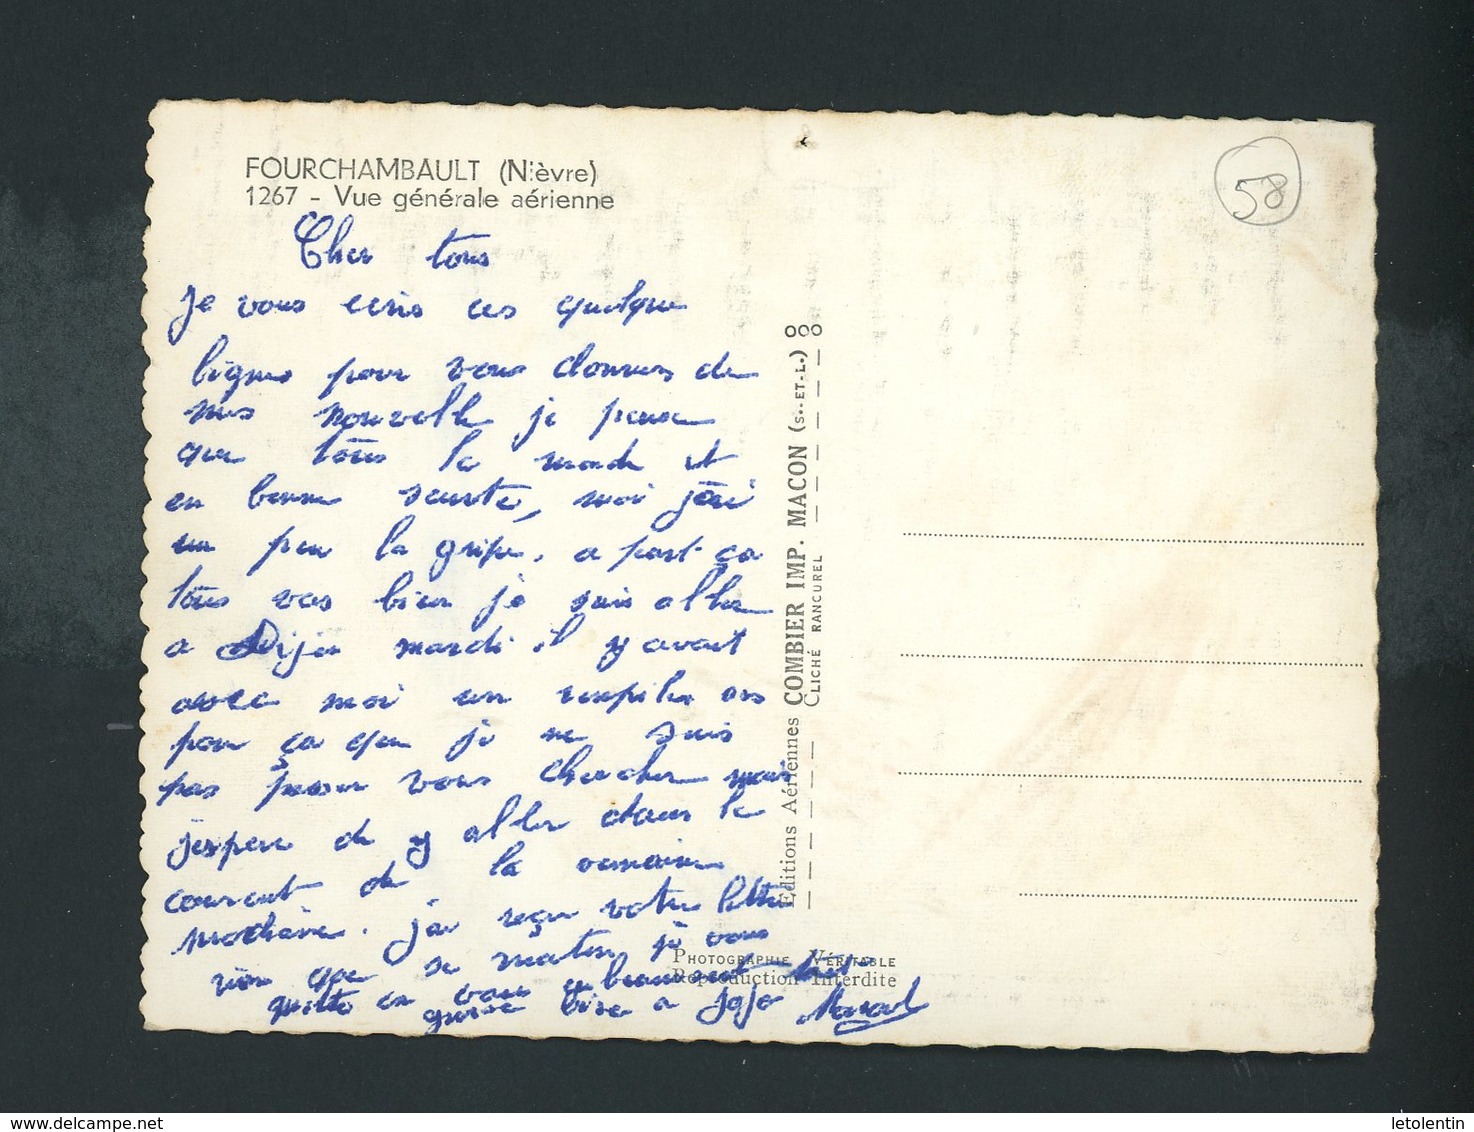 FOURCHAMBAULT (Nièvre)
1267 - Vue générale aérienne
58
Cher tous
je vous ecris ces quelque
lignes pour vous donners de
mes nouvelle je pense
que tous le monde et
en bonne sante, moi j'ai
un peu la gripe, a part ça
tous vas bien je suis aller
a Dijon mardi il y avait
avec moi un
pour ça que je ne suis
pas passer vous chercher mais
j'espere de y aller dans le
courent de la semaine
prochaine. j'ai reçu votre lettre
rien que se matin je vous
quitte en vous embrassent
grosse bise a jojo Marcel
Editions Aériennes COMBIER IMP. MACON (S.-ET-L.)
CLICHÉ RANCUREL
PHOTOGRAPHIE VÉRITABLE
Reproduction Interdite
www.delcampe.net
letolentin